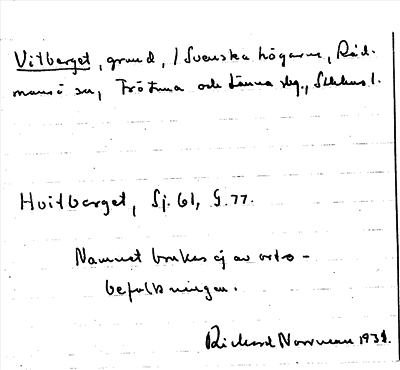 Vitberget, grund, / Svenska högarne, Råd-
mansö sn, Frötuna och Länna skg., Sthlms l.
Hvitberget, Sj. 61, S. 77.
Namnet brukas ej av orts-
befolkningen.
Rickard Norrman 1931.